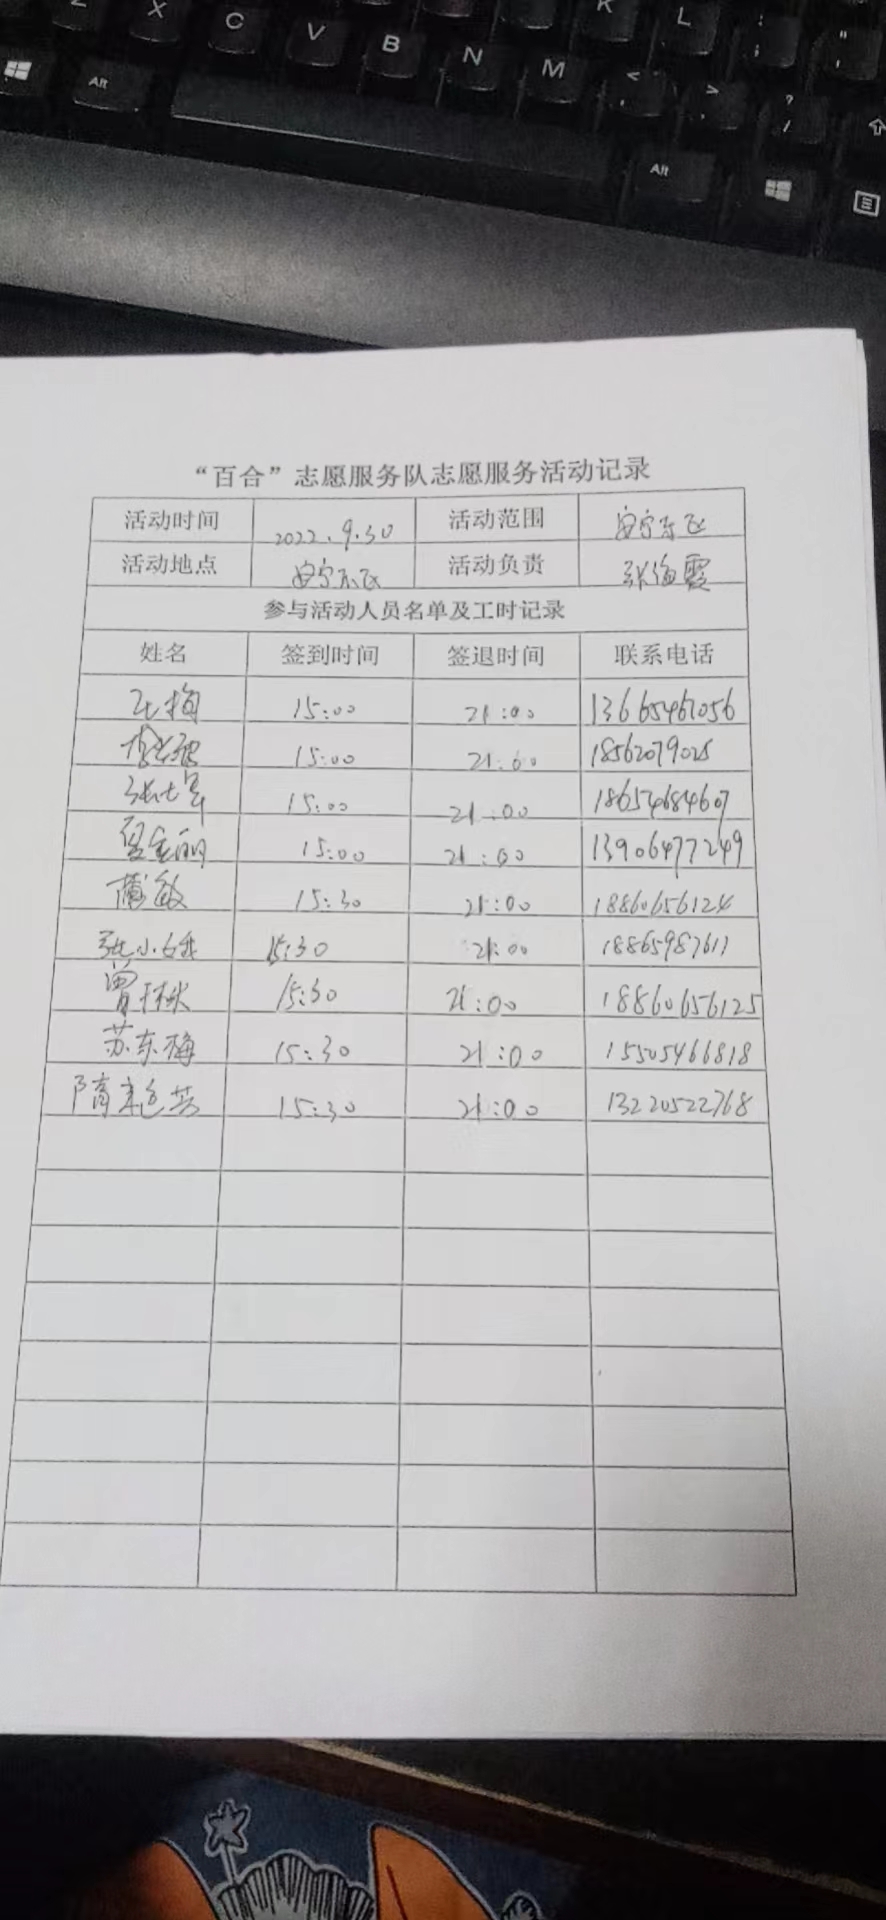 Z X C V B N M K L : ; " '
Alt < , > . ? /
Alt
“百合”志愿服务队志愿服务活动记录
活动时间 2022.9.30 活动范围
活动地点 活动负责 张海霞
参与活动人员名单及工时记录
姓名 签到时间 签退时间 联系电话
梅 15:00 21:00 13665467056
15:00 21:00 18562079025
张 15:00 21:00 18654684607
丽 15:00 21:00 13906477249
敏 15:30 21:00 18860656124
张小 15:30 21:00 18865987617
曾 15:30 21:00 18860656125
苏东梅 15:30 21:00 15505466818
隋 15:30 21:00 13220522768